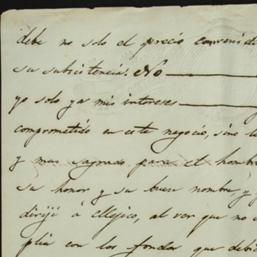 debe no solo el precio conveni
su subsistencia. No
yo solo ya mis intereses
comprometido en este negocio, sino l
y mas sagrado para el hombr
su honor y su buen nombre, y
dirijí á Mejico, al ver que no
plia con los fondos que debi